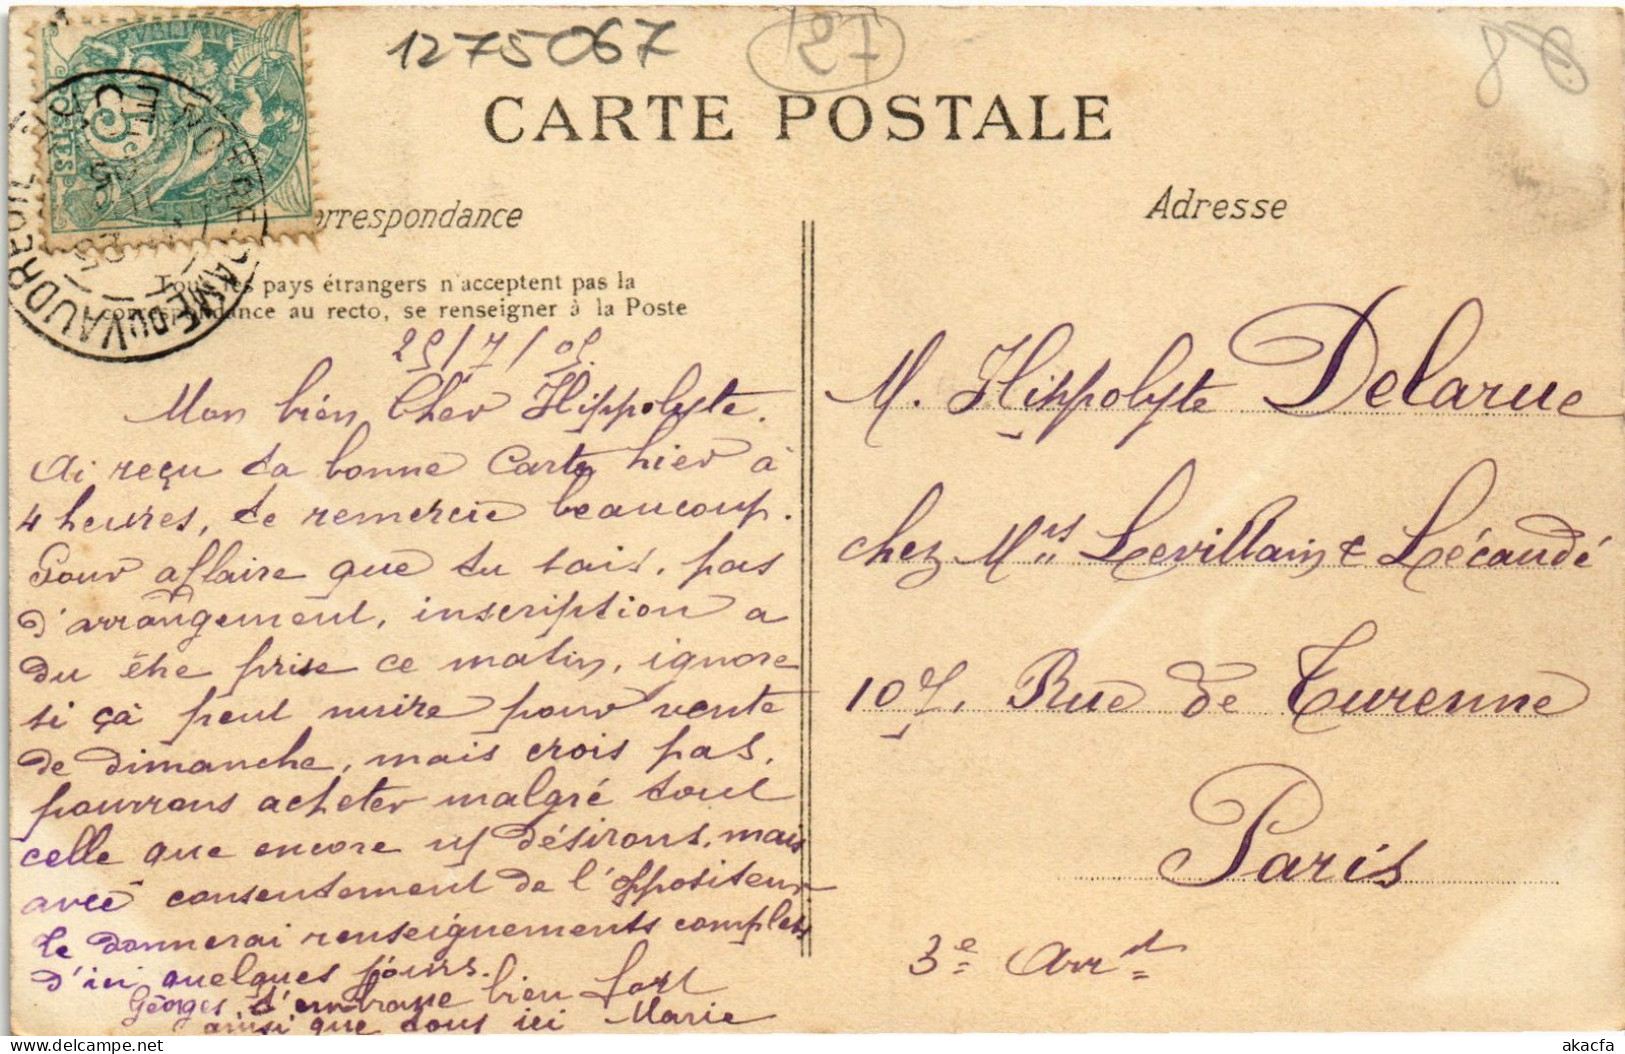 1275067
127
CARTE POSTALE
Correspondance
Tous les pays étrangers n'acceptent pas la
correspondance au recto, se renseigner à la Poste
RÉPUBLIQUE
POSTES
5c
NOTRE-DAME DU VAUDREUIL
EURE
25/7/05.
Mon bien Cher Hippolyte.
Ai reçu ta bonne Carte hier à
4 heures, te remercie beaucoup.
Pour affaire que tu sais, pas
d'arrangement, inscription a
du être prise ce matin, ignore
si çà peut nuire pour vente
de dimanche, mais crois pas,
pourrons acheter malgré tout
celle que encore désirons, mais
avec consentement de l'oppositeur
te donnerai renseignements complets
d'ici quelques jours.
Georges t'embrasse bien fort
ainsi que tous ici Marie
Adresse
M. Hippolyte Delarue
chez Mrs Levillain & Lécaudé
107, Rue de Turenne
Paris
3e Arrt
akacfa